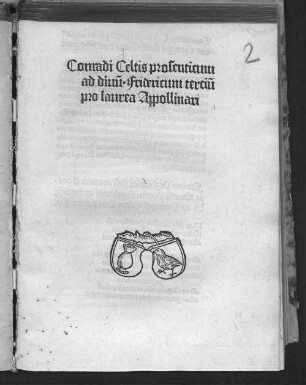 2
Conradi Celtis proseuticum
ad diuū. Fridericum terciū
pro laurea Appollinari